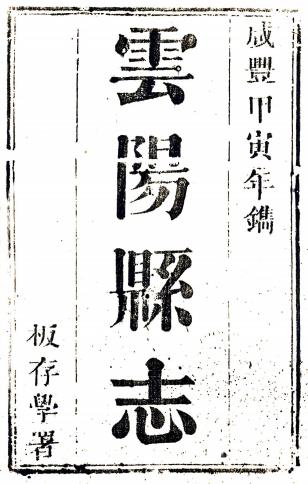 咸豐甲寅年鐫
雲陽縣志
板存學署